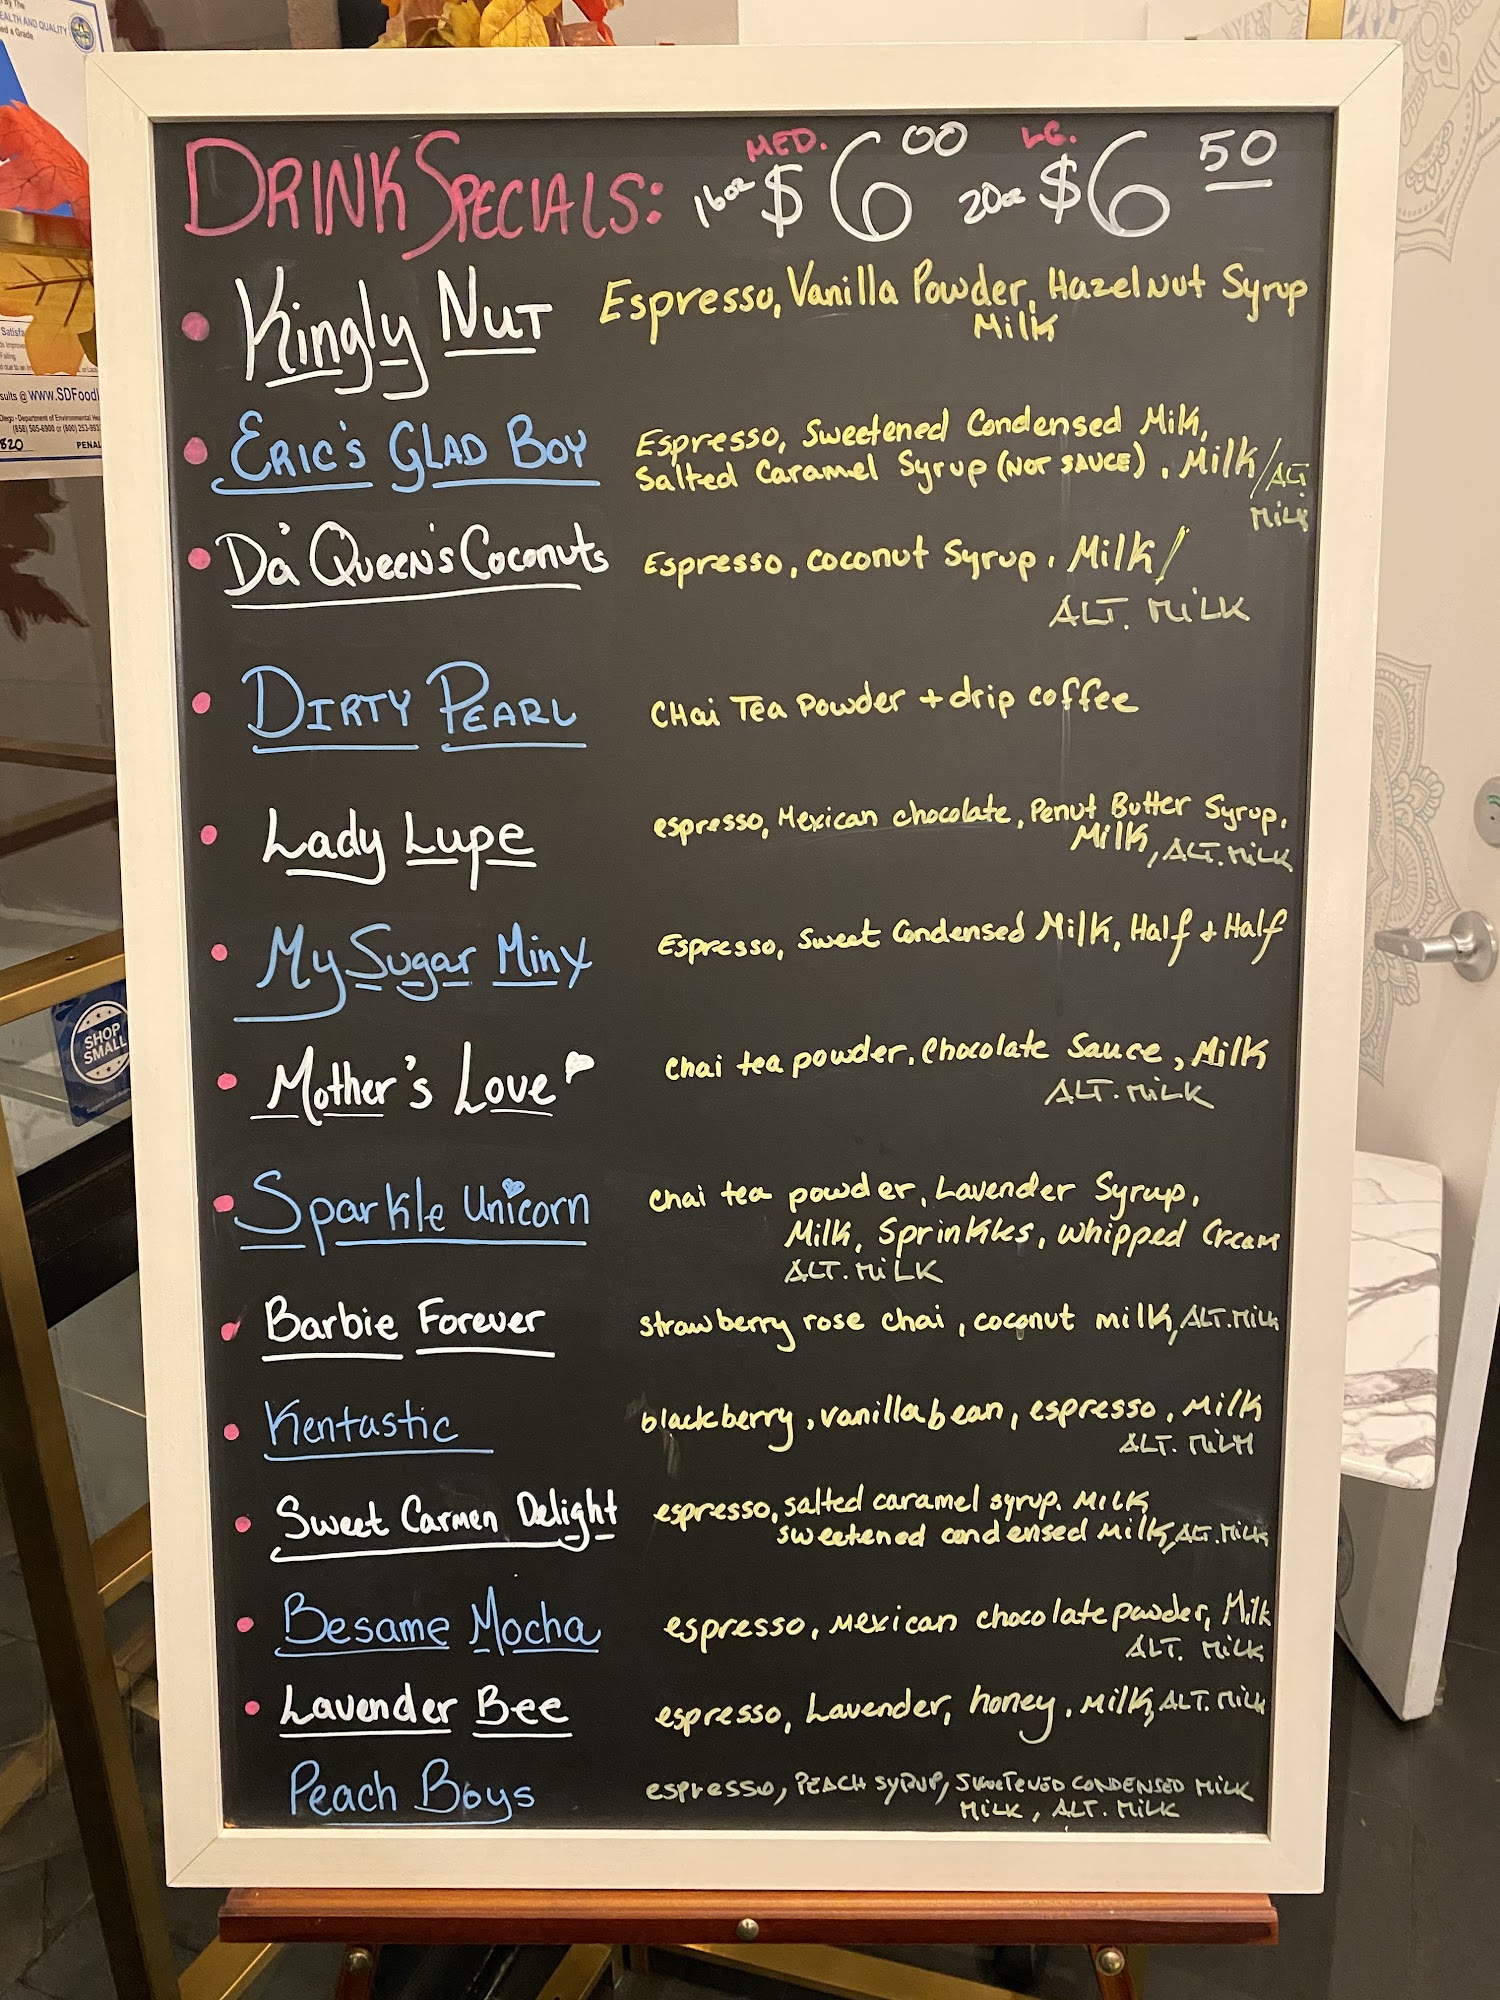 By The
EALTH AND QUALITY
ed a Grade
DRINK SPECIALS: 16oz MED. $6 00 20oz LG. $6 50
Kingly Nut Espresso, Vanilla Powder, Hazelnut Syrup
Milk
Eric's Glad Boy Espresso, Sweetened Condensed Milk,
Salted Caramel Syrup (NOT SAUCE), Milk/ALT
MILK
Da' Queen's Coconuts Espresso, coconut Syrup, Milk/
ALT. MILK
Dirty Pearl CHai Tea Powder + drip coffee
Lady Lupe espresso, Mexican chocolate, Penut Butter Syrup,
Milk, ALT. MILK
My Sugar Minx Espresso, Sweet Condensed Milk, Half & Half
Mother's Love chai tea powder, Chocolate Sauce, Milk
ALT. MILK
Sparkle Unicorn chai tea powder, Lavender Syrup,
Milk, Sprinkles, whipped cream
ALT. MILK
Barbie Forever strawberry rose chai, coconut milk, ALT. MILK
Kentastic blackberry, vanilla bean, espresso, Milk
ALT. MILK
Sweet Carmen Delight espresso, salted caramel syrup. MILK
sweetened condensed Milk, ALT. MILK
Besame Mocha espresso, mexican chocolate powder, Milk
ALT. MILK
Lavender Bee espresso, Lavender, honey, Milk, ALT. MILK
Peach Boys espresso, PEACH SYRUP, SWEETENED CONDENSED MILK
MILK, ALT. MILK
Satisfa
sults @ www.SDFoodI
Diego - Department of Environmental Hea
820 PENAL
SHOP
SMALL